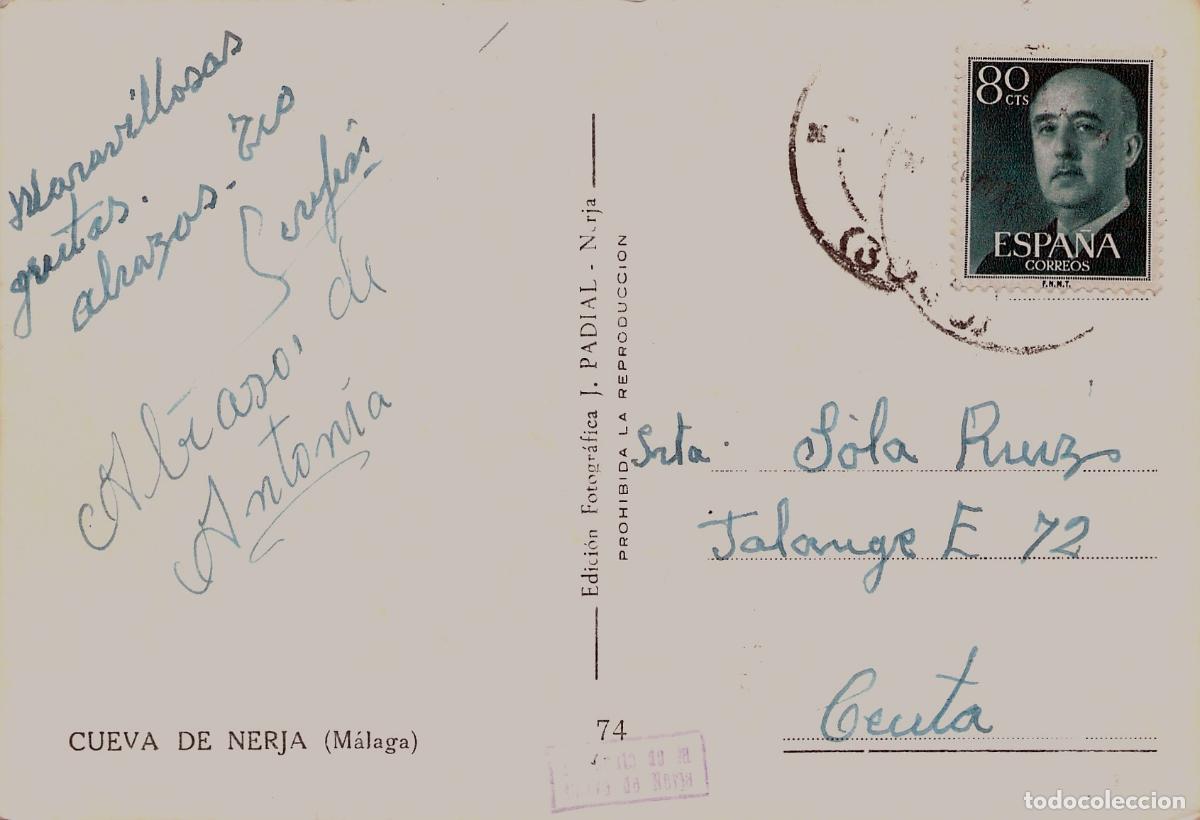 Maravillosas
grutas.
abrazos. Tío
Serafín
Abrasos, de
Antonía
CUEVA DE NERJA (Málaga)
Edición Fotográfica J. PADIAL - Nerja
PROHIBIDA LA REPRODUCCION
74
80
CTS
ESPAÑA
CORREOS
F.N.M.T.
Srta. Sóla Ruiz
Falange E 72
Ceuta
todocoleccion